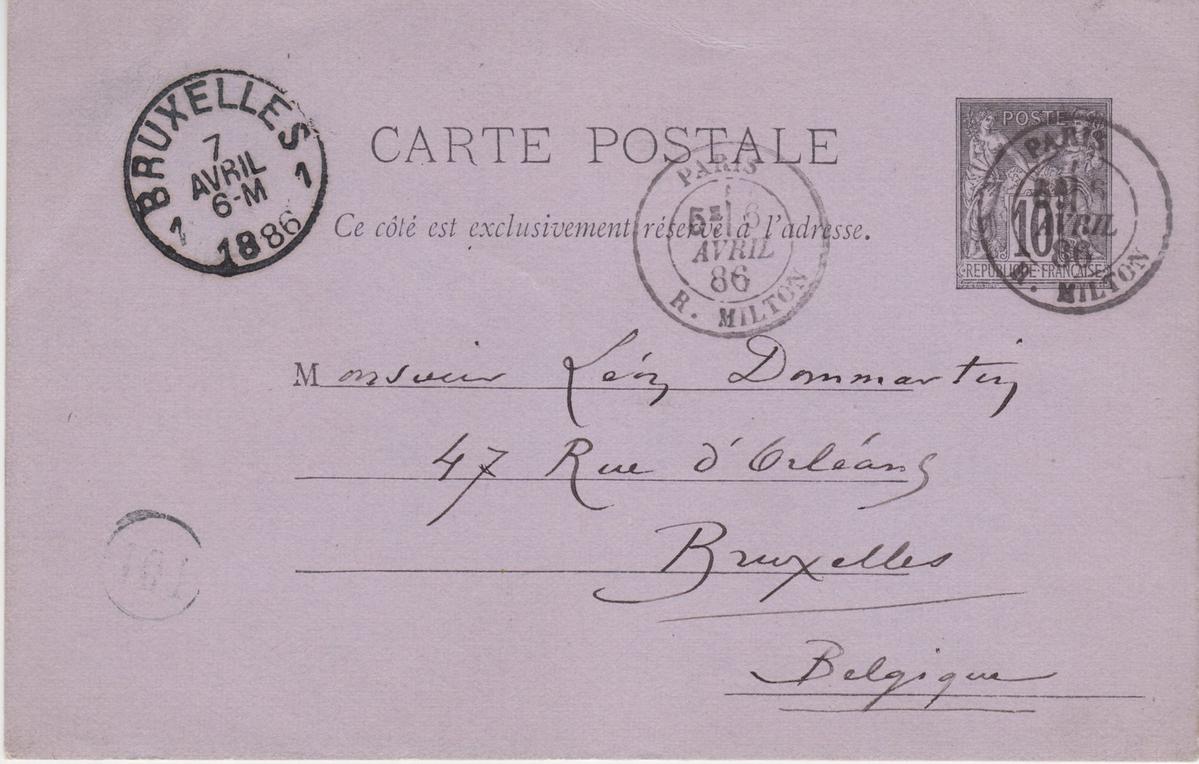 BRUXELLES
7
AVRIL
6-M
1 1
1886
CARTE POSTALE
Ce côté est exclusivement réservé à l'adresse.
PARIS
5E 6
AVRIL
86
R. MILTON
POSTES
10
REPUBLIQUE FRANÇAISE
PARIS
6
AVRIL
86
R. MILTON
Monsieur Léon Dommartin
47 Rue d'Orléans
Bruxelles
Belgique